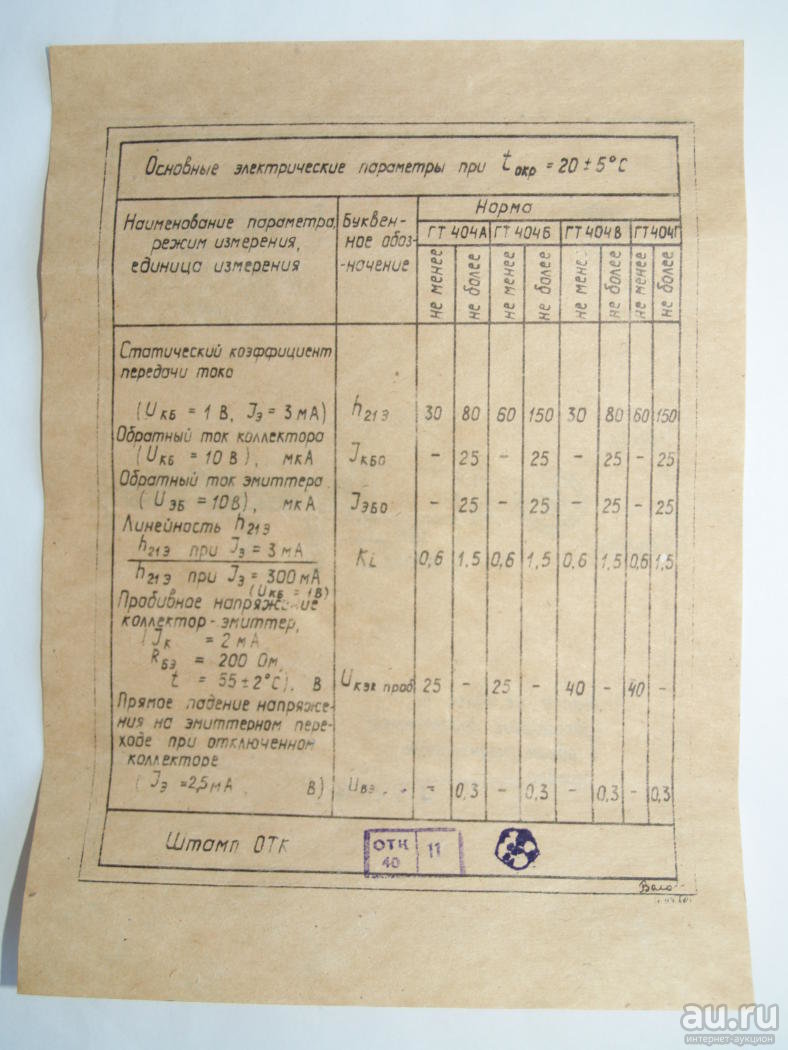 Основные электрические параметры при tокр = 20 ± 5°С
Наименование параметра, режим измерения, единица измерения
Буквен-
ное обоз-
-начение
Норма
ГТ 404А ГТ 404Б ГТ 404В ГТ404Г
не менее не более не менее не более не менее не более не менее не более
Статический коэффициент
передачи тока
(UКБ = 1 В, JЭ = 3 мА) h21Э 30 80 60 150 30 80 60 150
Обратный ток коллектора
(UКБ = 10 В), мкА JКБО – 25 – 25 – 25 – 25
Обратный ток эмиттера
(UЭБ = 10В), мкА JЭБО – 25 – 25 – 25 – 25
Линейность h21Э
h21Э при JЭ = 3 мА Кi 0,6 1,5 0,6 1,5 0,6 1,5 0,6 1,5
h21Э при JЭ = 300 мА
(UКБ = 1В)
Пробивное напряжение
коллектор-эмиттер,
(JК = 2 мА
RБЭ = 200 Ом,
t = 55±2°С). В UКЭR проб 25 – 25 – 40 – 40 –
Прямое падение напряже-
ния на эмиттерном пере-
ходе при отключенном
коллекторе
(JЭ =2,5 мА В) UВЭ – 0,3 – 0,3 – 0,3 – 0,3
Штамп ОТК
ОТК
40
11
au.ru
интернет-аукцион